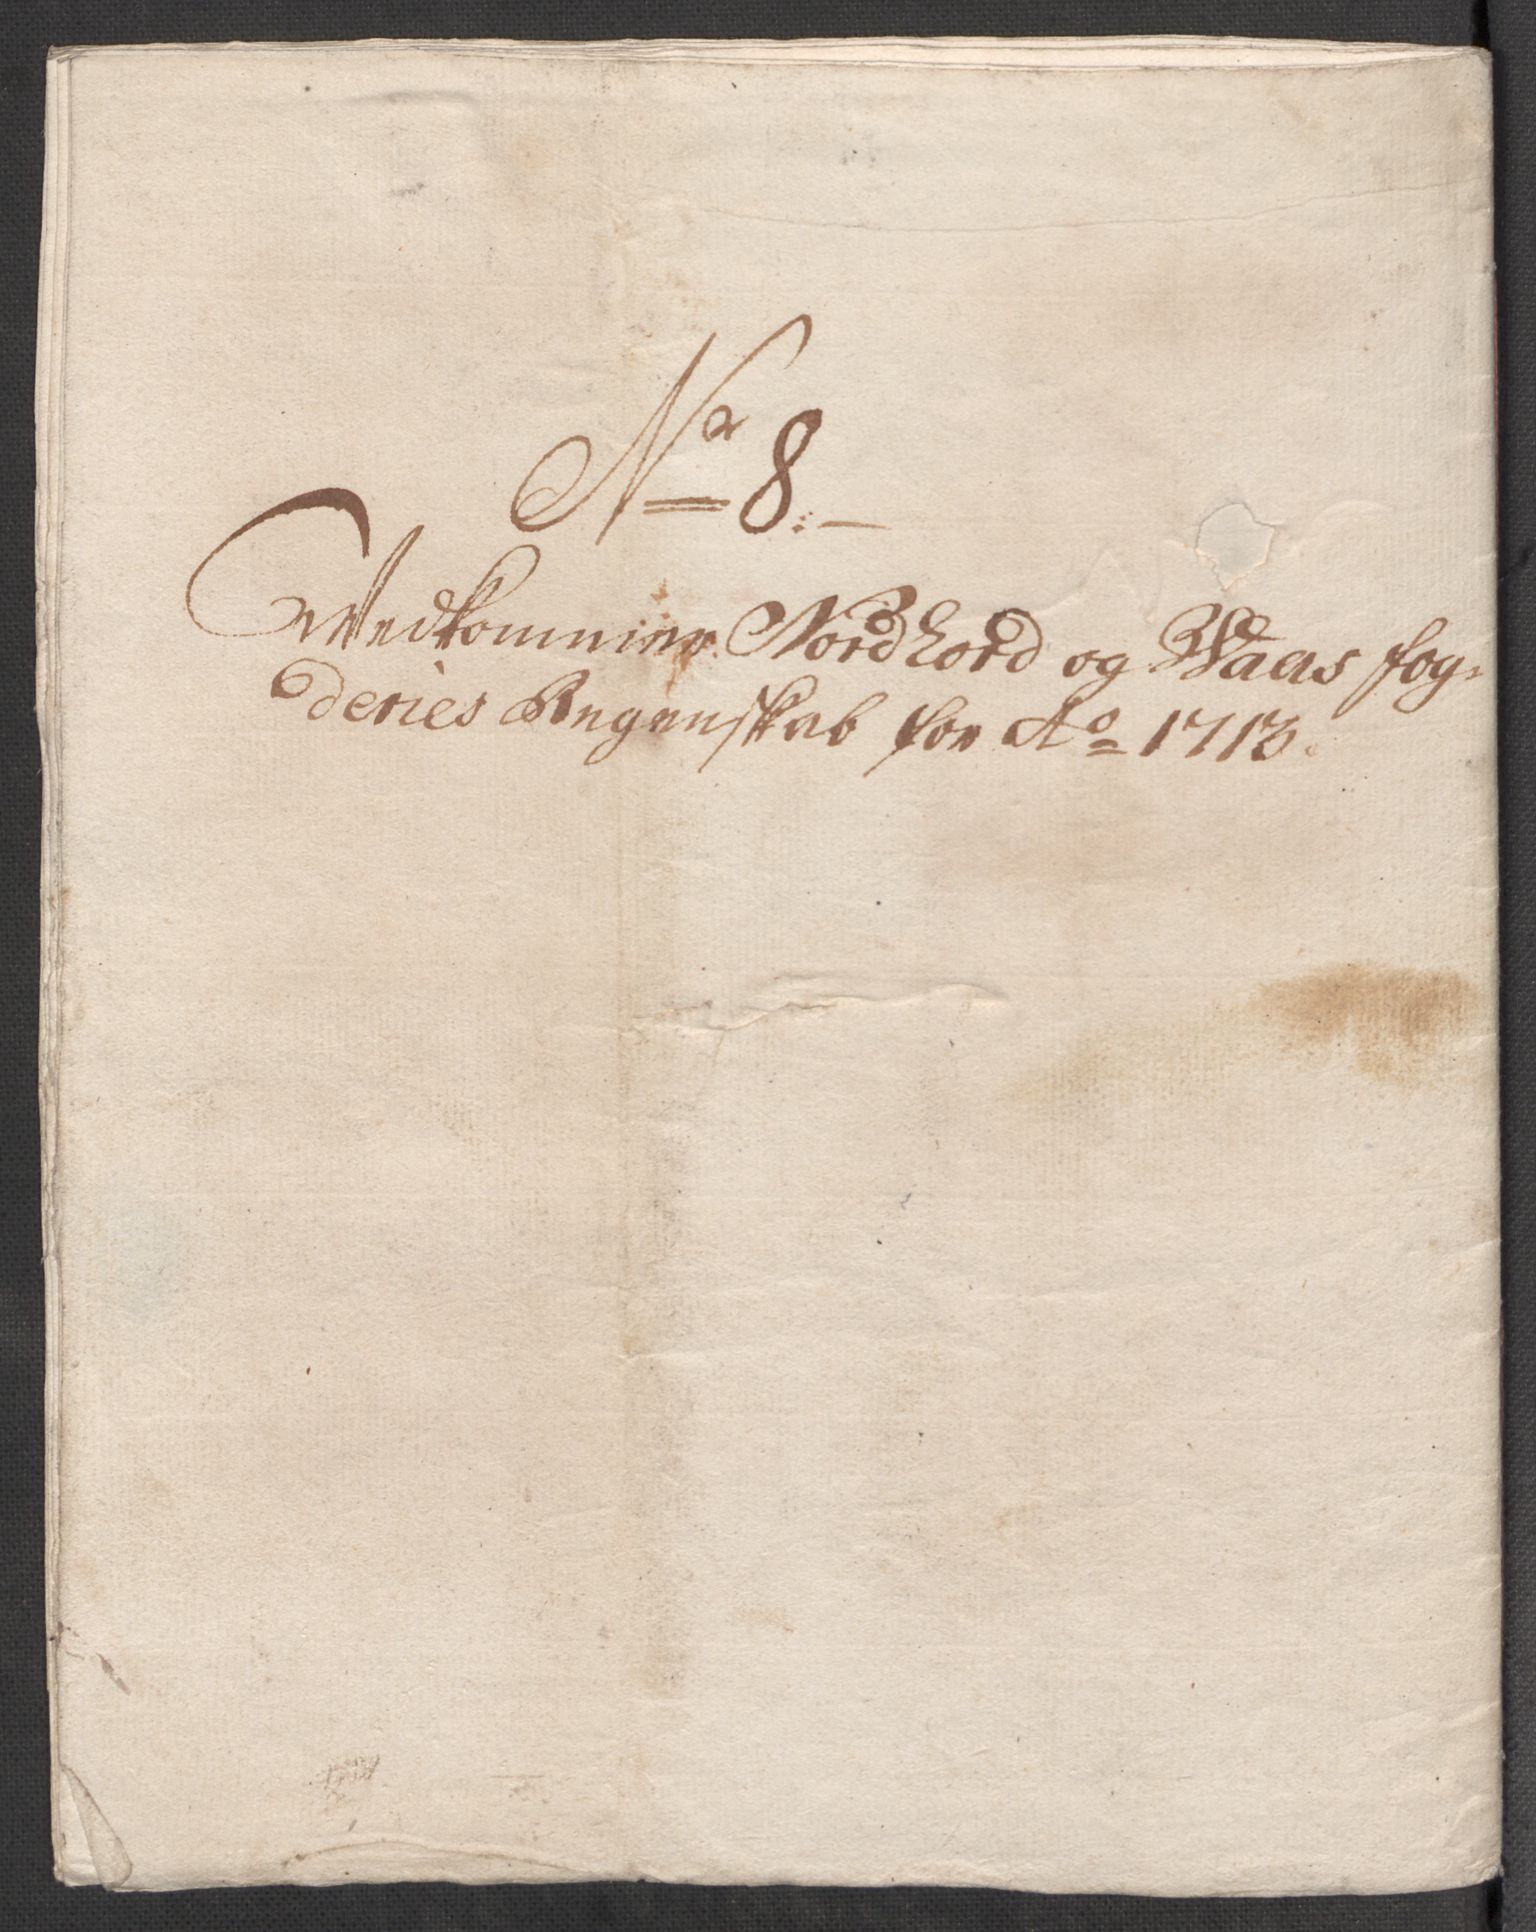 No 8.
Vedkommer Nordhord og Waas fog-
deries Regenskab for Ao 1713.